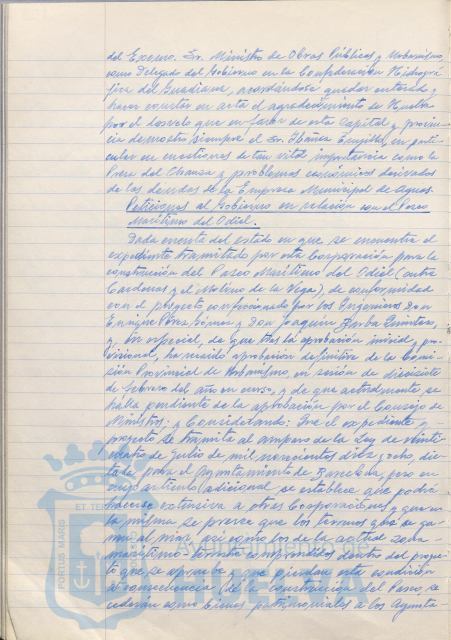 del Excmo. Sr. Ministro de Obras Públicas y Urbanismo,
como Delegado del Gobierno en la Confederación Hidrográ-
fica del Guadiana, acordándose quedar enterado y
hacer constar en acta el agradecimiento de Huelva
por el desvelo que en favor de esta Capital y provin-
cia demostró siempre el Sr. Ibáñez Trujillo, en parti-
cular en cuestiones de tan vital importancia como la
Presa del Chanza y problemas económicos derivados
de las deudas de la Empresa Municipal de Aguas.
Peticiones al Gobierno en relación con el Paseo
Marítimo del Odiel.
Dada cuenta del estado en que se encuentra el
expediente tramitado por esta Corporación para la
construcción del Paseo Marítimo del Odiel (entre
Cardenas y el Molino de la Vega), de conformidad
con el proyecto confeccionado por los Ingenieros Don
Enrique Pérez Gómez y Don Joaquín Barba Quintero,
y, en especial, de que tras la aprobación inicial y pro-
visional, ha recaído aprobación definitiva de la Comi-
sión Provincial de Urbanismo, en sesión de diecisiete
de febrero del año en curso, y de que actualmente se
halla pendiente de la aprobación por el Consejo de
Ministros; y Considerando: Que el expediente y
proyecto se tramita al amparo de la Ley de veinti-
cuatro de julio de mil novecientos diez y ocho, dic-
tada para el Ayuntamiento de Barcelona, pero en
cuyo artículo adicional se establece que podrá
hacerse extensiva a otras Corporaciones y que en
la misma se prevee que los terrenos que se ga-
nen al mar, así como los de la actual zona
marítimo-terrestre comprendidos dentro del proyec-
to que se apruebe y que pierdan esta condición
a consecuencia de la construcción del Paseo, se
cederán como bienes patrimoniales a los Ayunta-
PORTUS MARIS
ET TERRÆ